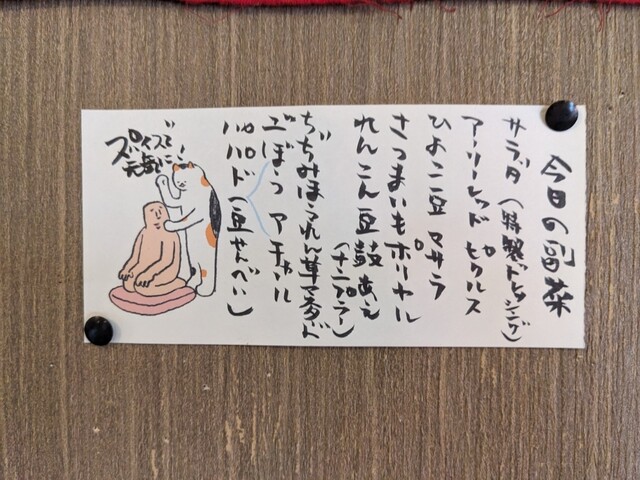 今日の副菜
サラダ（特製ドレッシング）
アーリーレッド ピクルス
ひよこ豆 マサラ
さつまいも ポリヤル
れんこん豆鼓あえ
（ナンプラー）
ちぢみほうれん草マサダル
ごぼう アチャール
パパド（豆せんべい）
スパイスで
元気に！